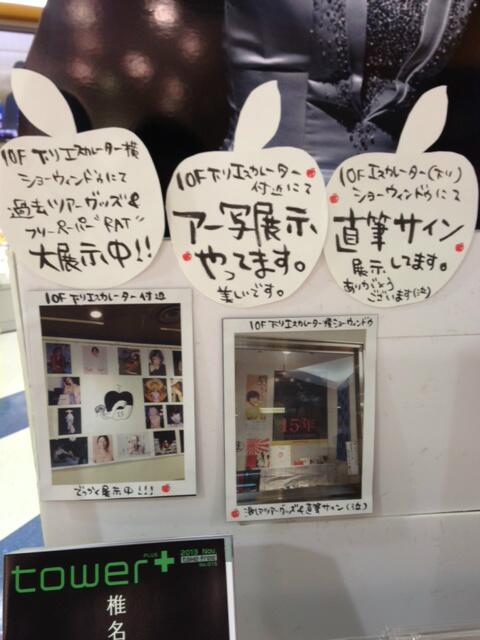 10F 下りエスカレーター横
ショーウィンドウにて
過去ツアーグッズ&
フリーペーパー"RAT"
大展示中!!
10F下りエスカレーター
付近にて
アー写展示
やってます。
美しいです。
10Fエスカレーター(下り)
ショーウィンドウにて
直筆サイン
展示してます。
ありがとう
ございます(泣)
10F 下りエスカレーター付近
でっかく展示中!!!
10F下りエスカレーター横ショーウィンドウ
15年
激レアツアーグッズ&直筆サイン(泣)
tower+
PLUS
2013 Nov.
take free
No.015
椎名